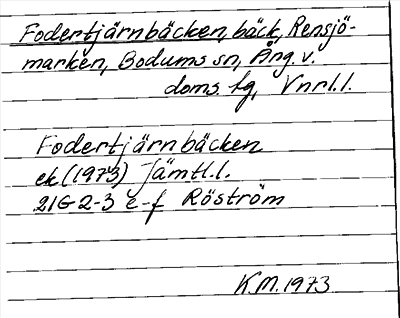 Fodertjärnbäcken, bäck, Rensjö-
marken, Bodums sn, Ång. v.
doms. tg, Vnrl.l.
Fodertjärnbäcken
ek (1973) Jämtl.l.
21G 2-3 e-f Röström
K.M. 1973